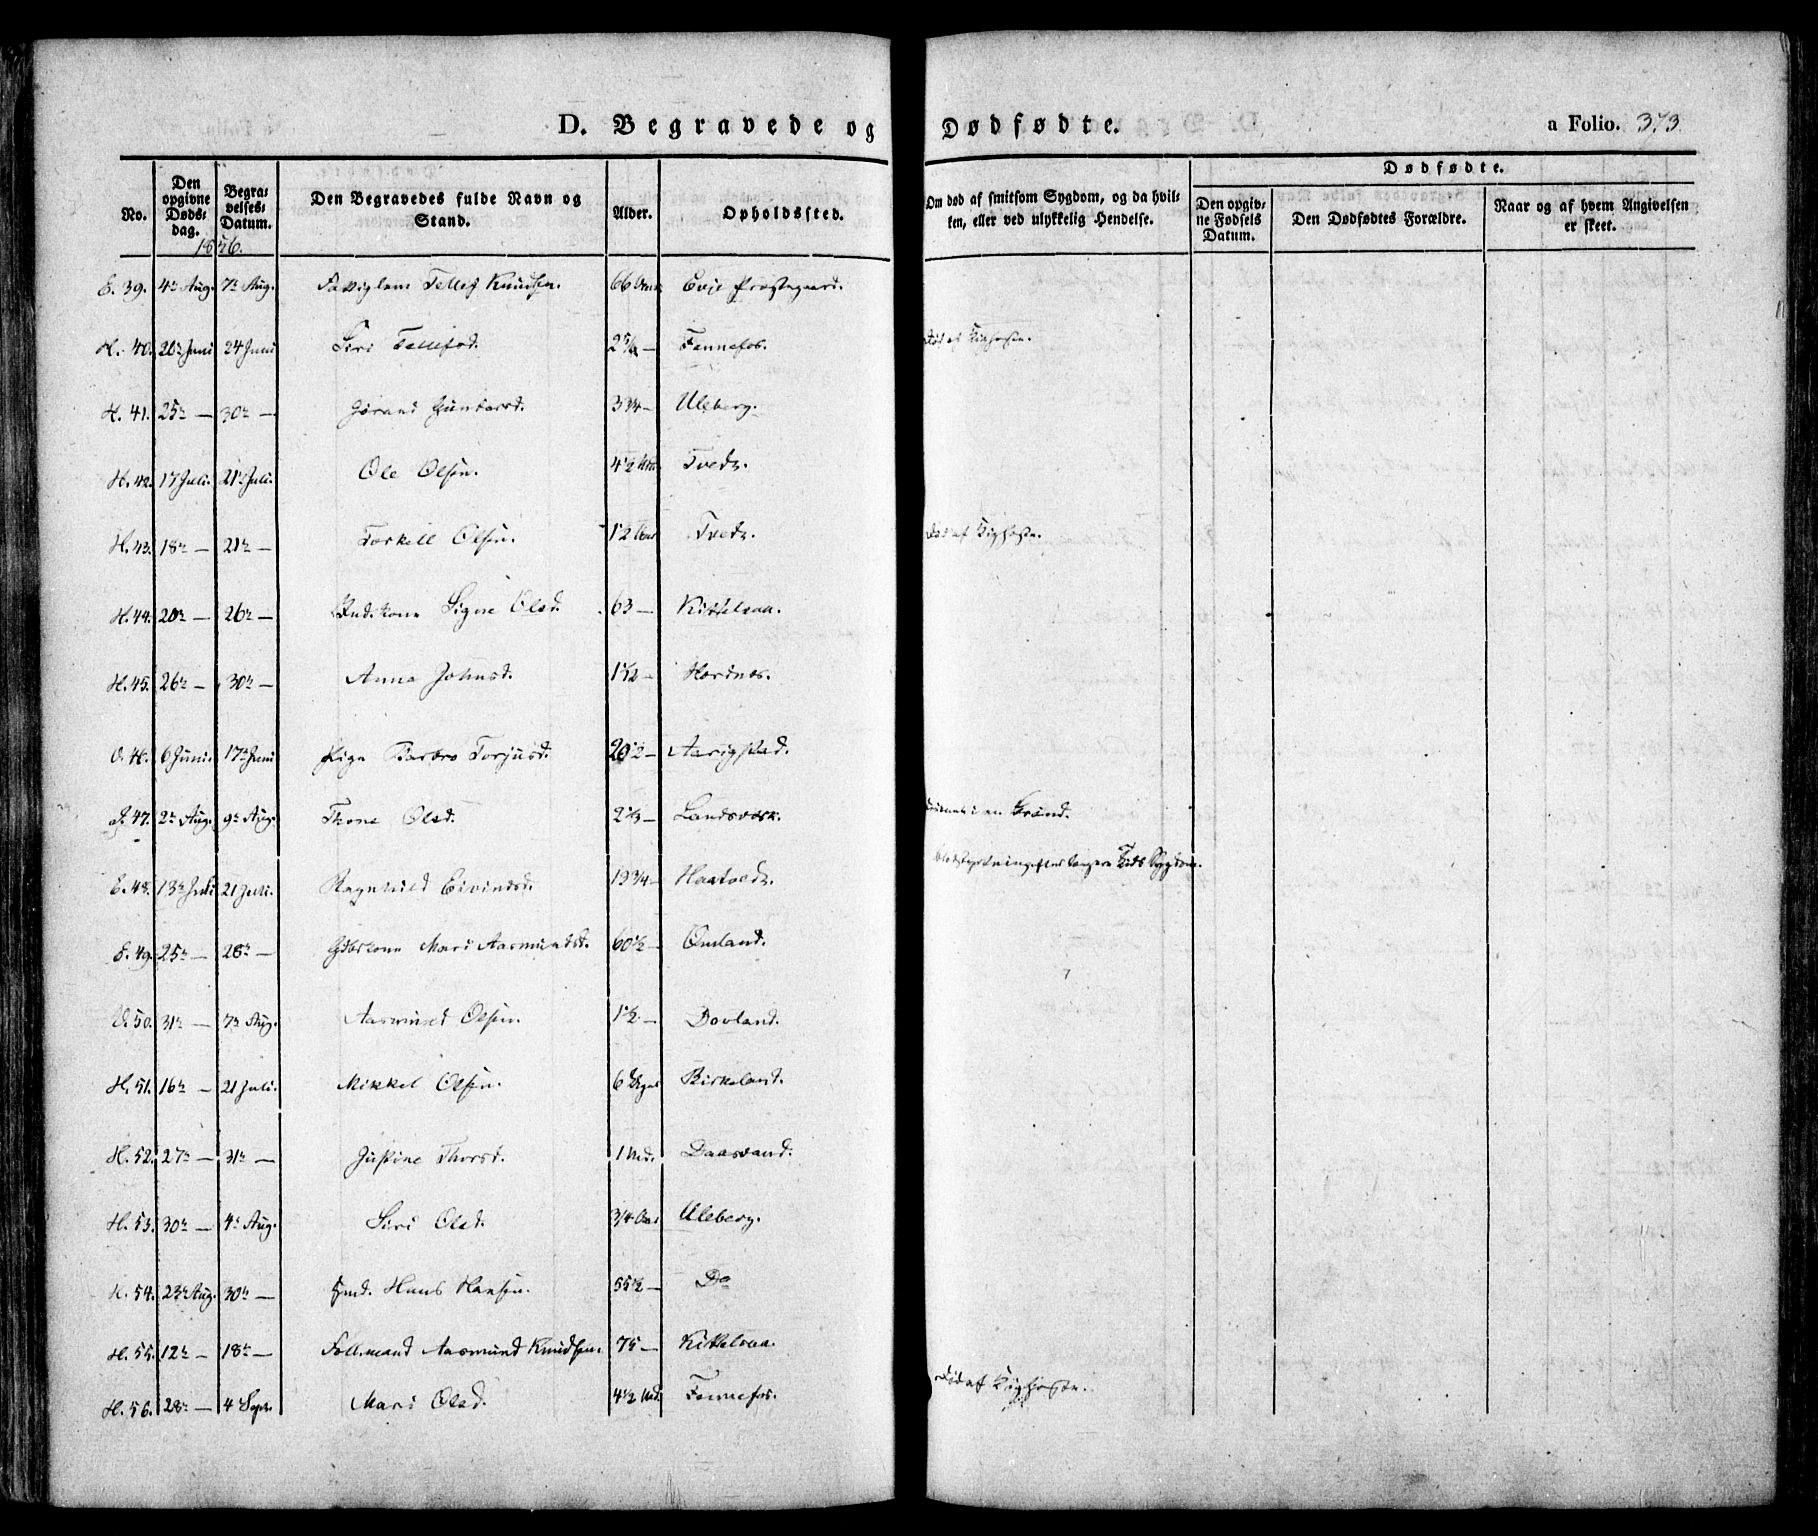 D. Begravede og Dødfødte. a Folio. 373.
No. | Den opgivne Døds-dag. | Begra-velses-Datum. | Den Begravedes fulde Navn og Stand. | Alder. | Opholdssted. | Om død af smitsom Sygdom, og da hvil-ken, eller ved ulykkelig Hendelse. | Dødfødte. | Den opgiv-ne Fødsels Datum. | Den Dødfødtes Forældre. | Naar og af hvem Angivelsen er skeet.
1846.
E. 39. 4de Aug. 7de Aug. Tellef Knudsen. 66 Aar Evje Præstegaard.
H. 40. 20de Juni 24 Juni Siri Tellefsd. Fennefos. Død af Kighoste.
H. 41. 25de — 30de — Jørand Gunvarsd. 3 3/4 — Uleberg.
H. 42. 17 Juli. 21de Juli. Ole Olsen. 4 1/2 Tvedt.
H. 43. 18de — 21de — Torkell Olsen. 12 Aar Tvedt. Død af Kighoste.
H. 44. 20de — 26de — Signe Olsd. 63 — Kittelsaa.
H. 45. 26de — 30de — Anne Johnsd. 1 1/2 — Hordnes.
V. 46. 6 Juni. 17de Juni Pige Barbro Torjusd. 20 1/2 — Aarigstad.
47. 2de Aug. 9de Aug. Thone Olsd. 2 1/3 — Landsværk. i en Brønd.
E. 48. 13de Juli 21 Juli. Ragnhild Eivindsd. 19 3/4 — Haatvedt. Blodstyrtning efter længere Tids Sygdom.
E. 49. 25de — 28de — Gdbrkone Mari Aasmundsd. 60 1/2 — Omland.
V. 50. 31te — 7de Aug. Aasmund Olsen. 1 1/2 — Dovland.
H. 51. 16de — 21 Juli. Mikkel Olsen. 6 Uger Birkeland.
H. 52. 27de — 31te — Justine Thorsd. 1 Md. Daasvand.
H. 53. 30de — 4de Aug. Siri Olsd. 3/4 Aar Uleberg.
H. 54. 23de Aug. 30de — Gmd. Hans Hansen. 55 1/2 — Do
H. 55. 12te — 18de — Føll.mand Aasmund Knudsen. 75 — Kittelsaa.
H. 56. 28de — 4de Sept. Mari Olsd. 4 1/2 Md. Fennefos. Død af Kighoste.